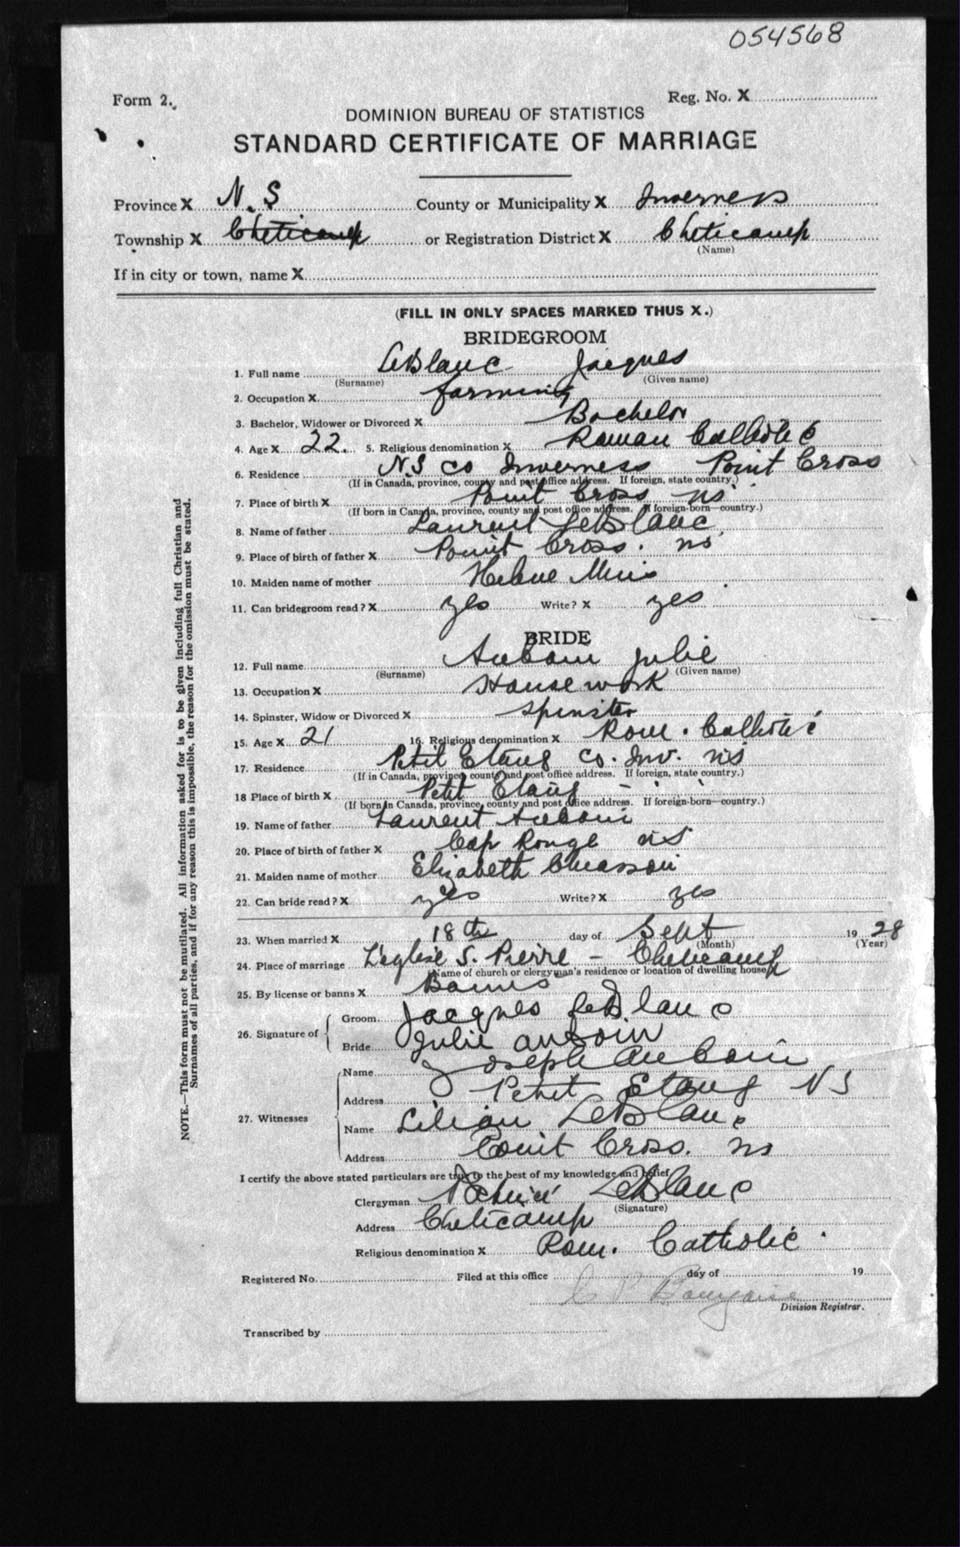 054568
Form 2.
Reg. No. X
DOMINION BUREAU OF STATISTICS
STANDARD CERTIFICATE OF MARRIAGE
Province X N. S County or Municipality X Inverness
Township X Cheticamp or Registration District X Cheticamp
(Name)
If in city or town, name X
(FILL IN ONLY SPACES MARKED THUS X.)
BRIDEGROOM
1. Full name LeBlanc Jacques
(Surname) (Given name)
2. Occupation X farming
3. Bachelor, Widower or Divorced X Bachelor
4. Age X 22. 5. Religious denomination X Roman Catholic
6. Residence N.S co Inverness Point Cross
(If in Canada, province, county and post office address. If foreign, state country.)
7. Place of birth X Point Cross ns.
(If born in Canada, province, county and post office address. If foreign-born—country.)
8. Name of father Laurent LeBlanc
9. Place of birth of father X Point Cross. ns
10. Maiden name of mother Helene
11. Can bridegroom read? X yes Write? X yes
BRIDE
12. Full name Aucoin Julie
(Surname) (Given name)
13. Occupation X House work
14. Spinster, Widow or Divorced X Spinster
15. Age X 21 16. Religious denomination X Rom. Catholic
17. Residence Petit Etang co. Inv. ns
(If in Canada, province county and post office address. If foreign, state country.)
18 Place of birth X Petit Etang - -
(If born in Canada, province, county and post office address. If foreign-born—country.)
19. Name of father Laurent Aucoin
20. Place of birth of father X Cap Rouge ns
21. Maiden name of mother Elizabeth Chiasson
22. Can bride read? X yes Write? X yes
23. When married X 18th day of Sept 1928
(Month) (Year)
24. Place of marriage L'eglise S. Pierre - Cheticamp
(Name of church or clergyman's residence or location of dwelling house)
25. By license or banns X Banns
26. Signature of
Groom. Jacques LeBlanc
Bride Julie aucoin
27. Witnesses
Name Joseph Aucoin
Address Petit Etang N S
Name Lilian LeBlanc
Address Point Cross. ns
I certify the above stated particulars are true to the best of my knowledge and belief
Clergyman LeBlanc
(Signature)
Address Cheticamp
Religious denomination X Rom. Catholic
Registered No. Filed at this office day of 19
Division Registrar.
Transcribed by
NOTE.—This form must not be mutilated. All information asked for is to be given including full Christian and
Surnames of all parties, and if for any reason this is impossible, the reason for the omission must be stated.